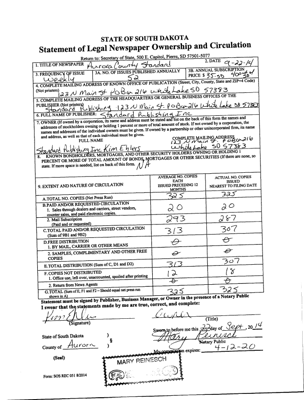 STATE OF SOUTH DAKOTA
Statement of Legal Newspaper Ownership and Circulation
Return to: Secretary of State, 500 E. Capitol, Pierre, SD 57501-5077
1. TITLE OF NEWSPAPER Aurora County Standard
2. DATE 9-22-14
3. FREQUENCY OF ISSUE Weekly
3A. NO. OF ISSUES PUBLISHED ANNUALLY 52
3B. ANNUAL SUBSCRIPTION PRICE $
4. COMPLETE MAILING ADDRESS OF KNOWN OFFICE OF PUBLICATION (Street, City, County, State and ZIP+4 Code) (Not printer)
123 N Main St PO Box 216 White Lake SD 57383
5. COMPLETE MAILING ADDRESS OF THE HEADQUARTERS OF GENERAL BUSINESS OFFICES OF THE PUBLISHER (Not printer)
Standard Publishing 123 N Main St PO Box 216 White Lake SD 57383
6. FULL NAME OF PUBLISHER: Standard Publishing Inc
7. OWNER (If owned by a corporation, its name and address must be stated and also the names and addresses of stockholders owning or holding 1 percent or more of total amount of stock. If not owned by a corporation, the names and addresses of the individual owners must be given. If owned by a partnership or other unincorporated firm, its name and address, as well as that of each individual must be given.
FULL NAME
COMPLETE MAILING ADDRESS
Standard Publishing Inc Kim Ehlers
123 N Main St PO Box 216
White Lake SD 57383
8. KNOWN BONDHOLDERS, MORTGAGEES, AND OTHER SECURITY HOLDERS OWNING OR HOLDING 1 PERCENT OR MORE OF TOTAL AMOUNT OF BONDS, MORTGAGES OR OTHER SECURITIES (If there are none, so state. If more space is needed, list on back of this form.
N/A
9. EXTENT AND NATURE OF CIRCULATION
AVERAGE NO. COPIES EACH ISSUED PRECEDING 12 MONTHS
ACTUAL NO. COPIES ISSUED NEAREST TO FILING DATE
A. TOTAL NO. COPIES (Net Press Run) 325 325
B. PAID AND/OR REQUESTED CIRCULATION
1. Sales through dealers and carriers, street vendors, counter sales, and paid electronic copies. 20 20
2. Mail Subscription (Paid and or requested) 293 287
C. TOTAL PAID AND/OR REQUESTED CIRCULATION (Sum of 9B1 and 9B2) 313 307
D. FREE DISTRIBUTION
1. BY MAIL, CARRIER OR OTHER MEANS
2. SAMPLES, COMPLIMENTARY AND OTHER FREE COPIES
E. TOTAL DISTRIBUTION (Sum of C, D1 and D2) 313 307
F. COPIES NOT DISTRIBUTED
1. Office use, left over, unaccounted, spoiled after printing 12 18
2. Return from News Agents
G. TOTAL (Sum of E, F1 and F2 - Should equal net press run shown in A) 325 325
Statement must be signed by Publisher, Business Manager, or Owner in the presence of a Notary Public
I swear that the statements made by me are true, correct, and complete:
(Signature)
(Title)
State of South Dakota )
County of Aurora )
Sworn to before me this 22 day of Sept, 2014
Mary Reinesch
Notary Public
expires: 4-12-20
(Seal)
MARY REINESCH
Form: SOS REC 051 8/2014